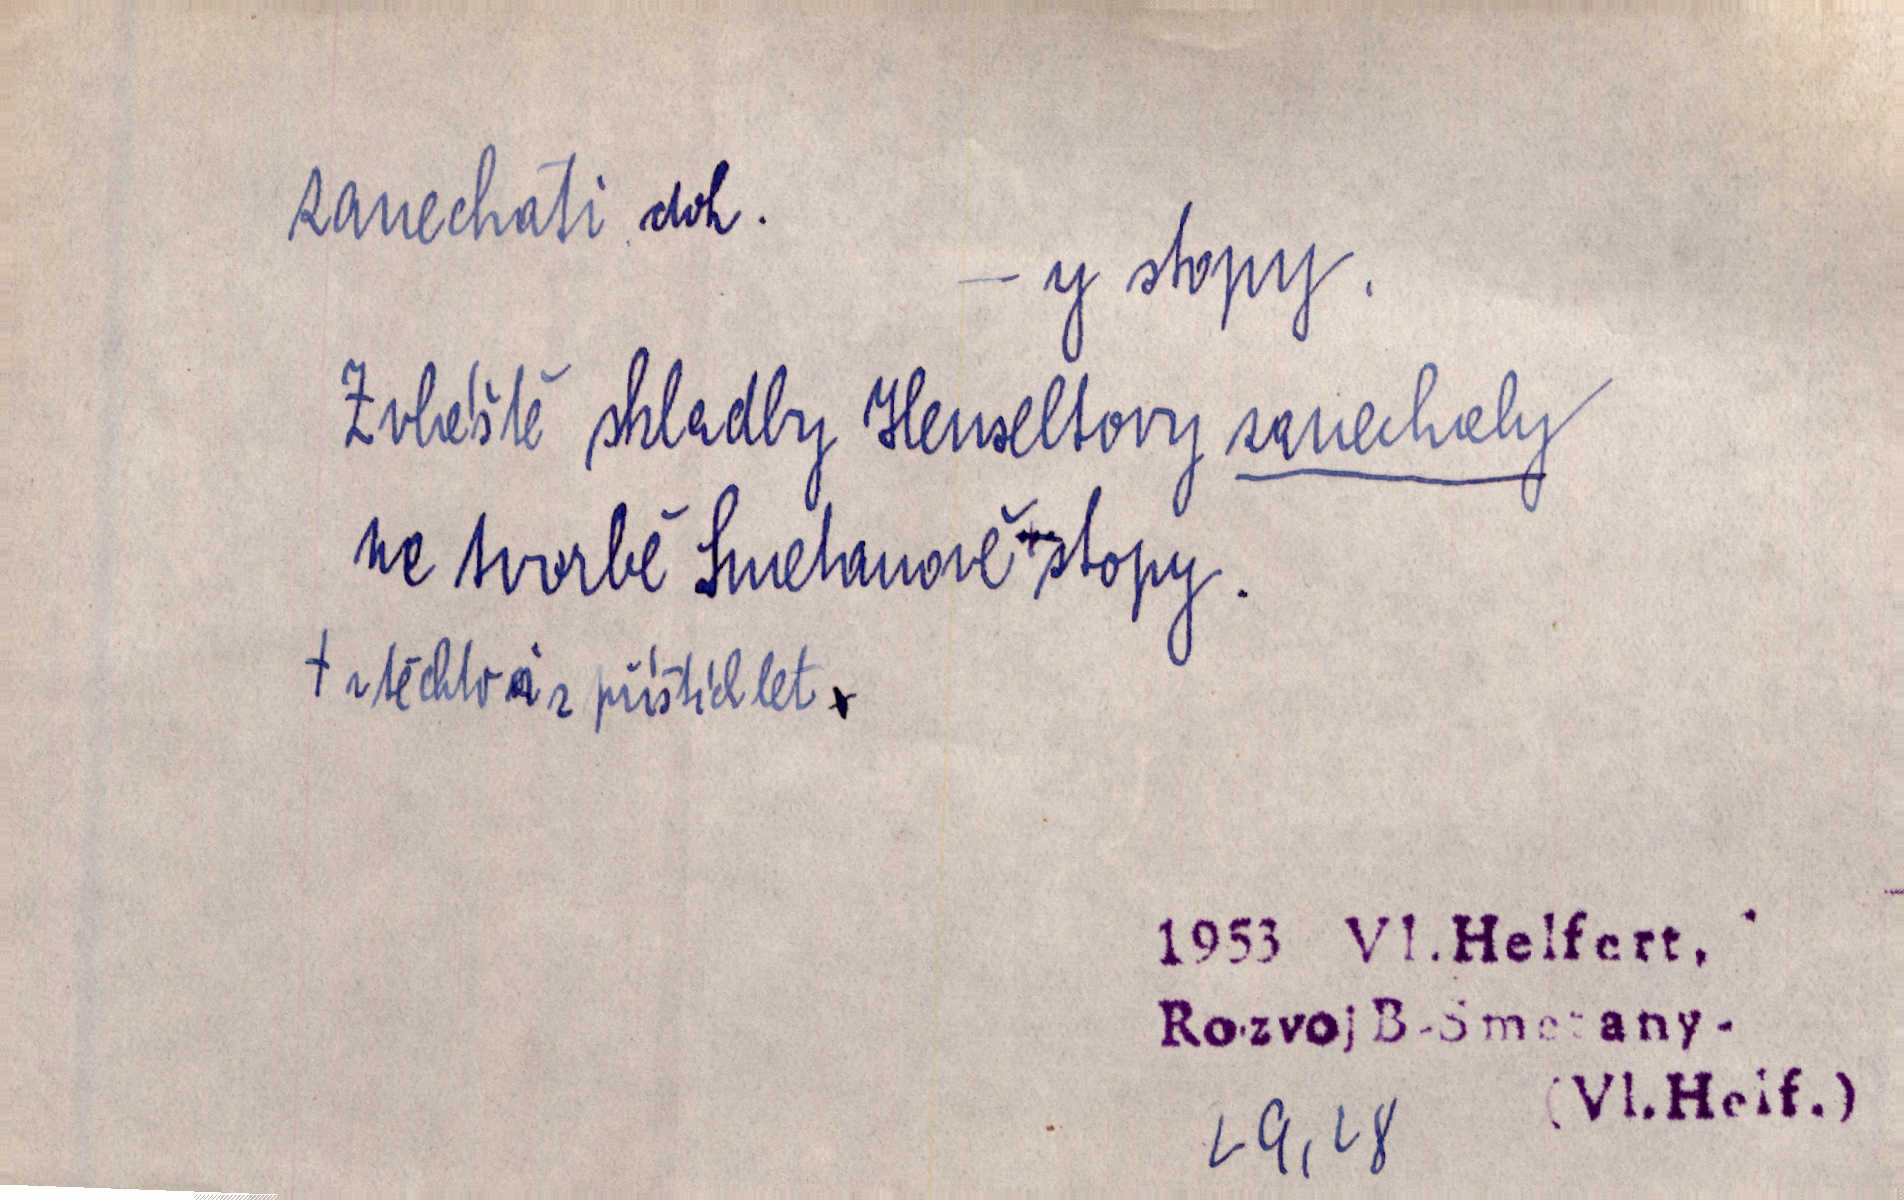 zanechati dok.
— y stopy.
Zvláště skladby Henseltovy zanechaly
na tvorbě Smetanově + stopy.
+ z těchto i z příštích let.
1953 Vl.Helfert,
Rozvoj B.Smetany-
(Vl.Helf.)
29,28